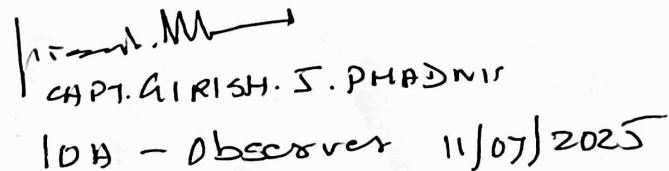 CAPT. GIRISH. J. PHADNIS
IOA - Observer 11/07/2025